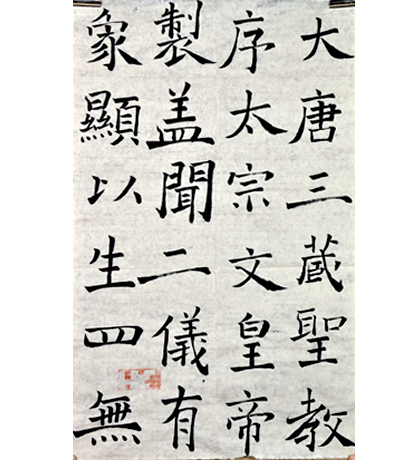 大唐三蔵聖教
序太宗文皇帝
製盖聞二儀有
象顯以生四無